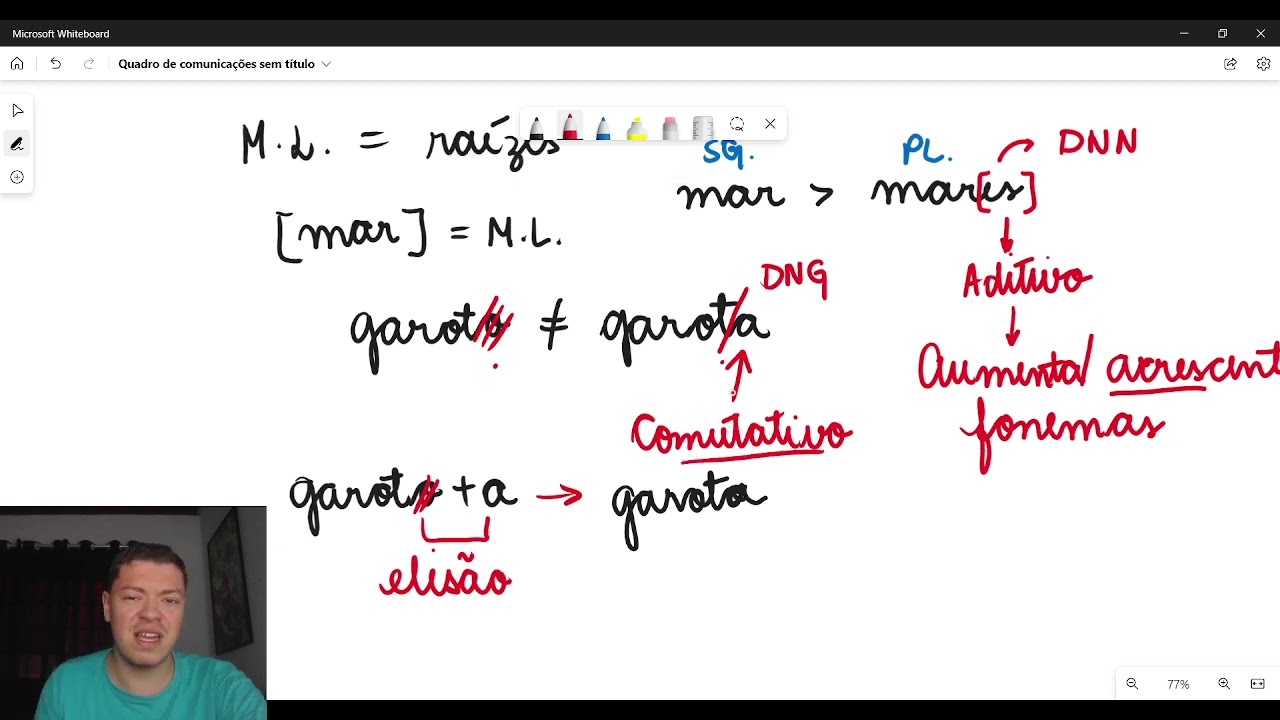 Microsoft Whiteboard
Quadro de comunicações sem título
M.L. = raízes
SG. PL. DNN
mar > mar[es]
[mar] = M.L.
Aditivo
DNG
garoto ≠ garota
Aumenta/ acrescent
fonemas
Comutativo
garoto + a → garota
elisão
77%